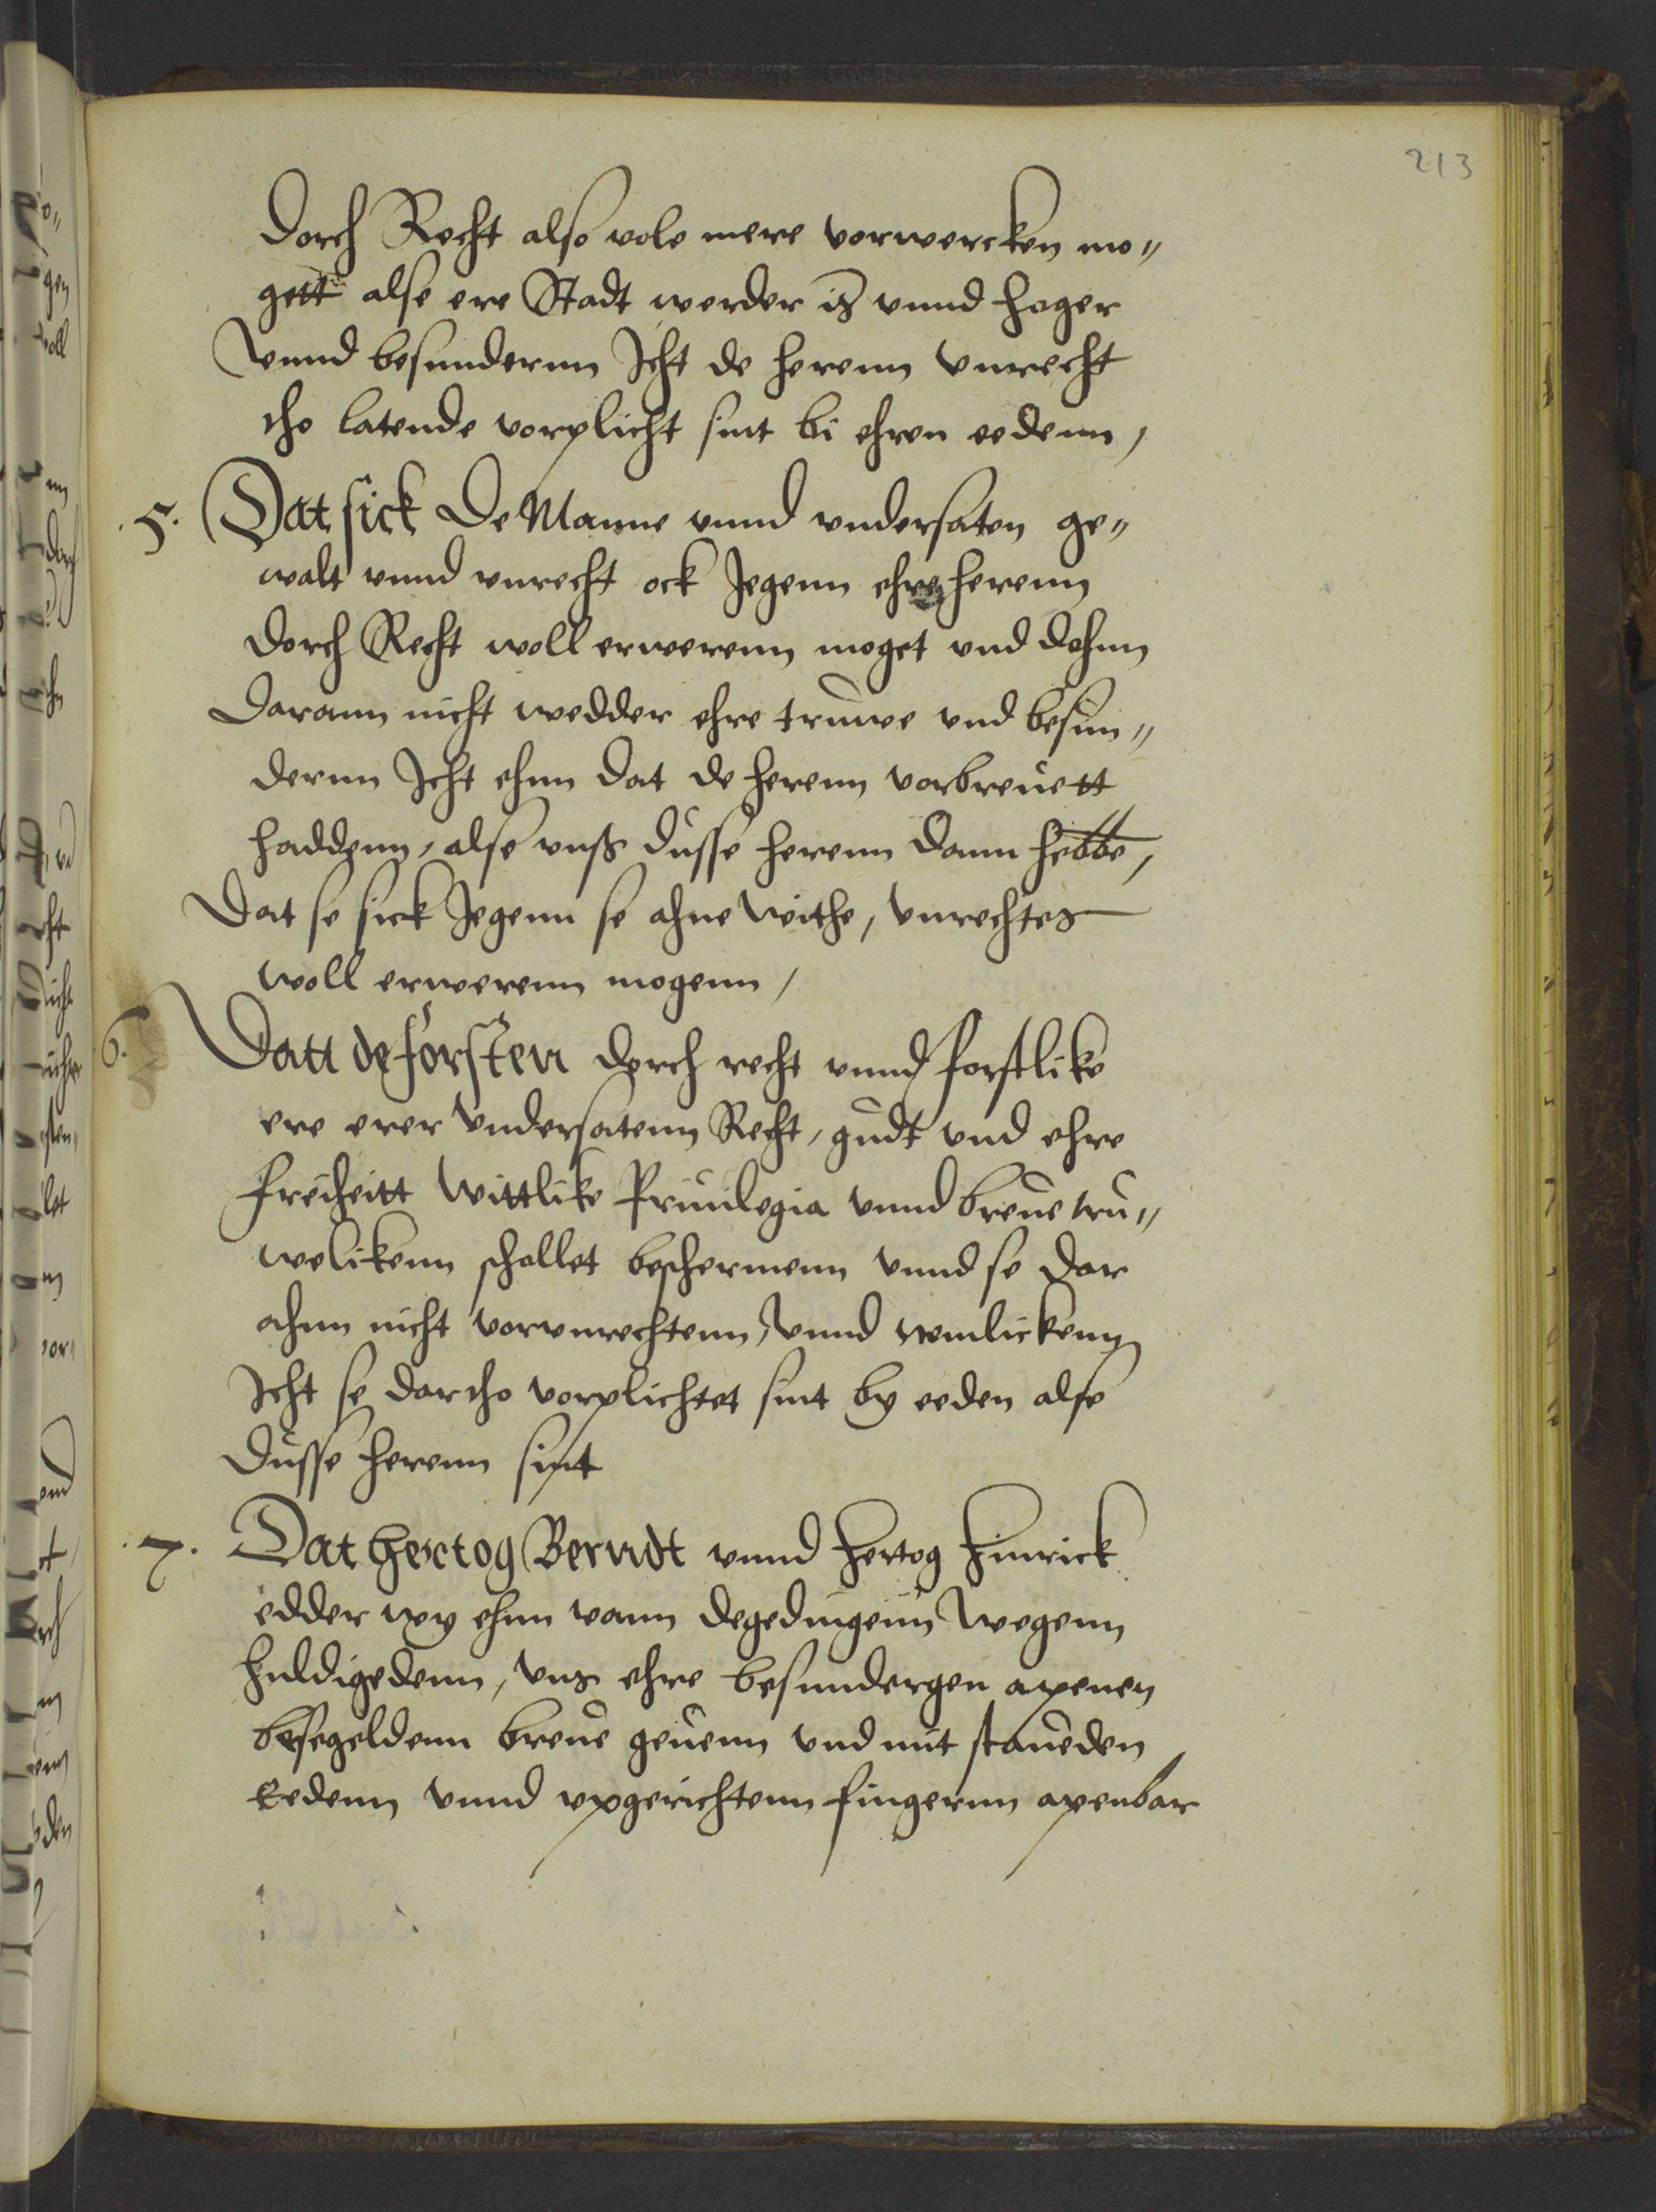 213
dorch Recht also vole mere vorwercken mo„
gett alse ere Stadt werder is vnnd hoger
Vnnd besundernn Icht de herenn vnrecht
tho latende vorplicht sint bi ehren eedenn,
5. Dat sick De Manne vnnd vndersaten ge„
walt vnnd vnrecht ock Jegenn ehre herenn
dorch Recht woll erwerenn moget vnd dohnn
darann nicht wedder ehre truwe vnd besun„
dernn Icht ehnn dat de herenn vorbreuett
haddenn, alse vnß dusse herenn dann hebbe,
Dat se sick Jegenn se ahne withe, vnrechtes
woll erwerenn mogenn,
6. Datt de forsten dorch recht vnnd forstlike
ere erer vndersatenn Recht, gudt vnd ehre
freiheitt wittlike Priuilegia vnnd breue tru„
welikenn schollet beschermenn vnnd se dar
ahnn nicht vorvnrechtenn, vnnd nemlickenn
Icht se dartho vorplichtet sint by eeden alse
dusse herenn sint
7. Dat Hertog Berndt vnnd Hertog Hinrick
edder wy ehnn vann degedingenn wegenn
huldigedenn, vns ehre besundergen apenen
besegeldenn breue geuenn vnd mit staueden
Eedenn vnnd vpgerichtenn fingernn apenbar